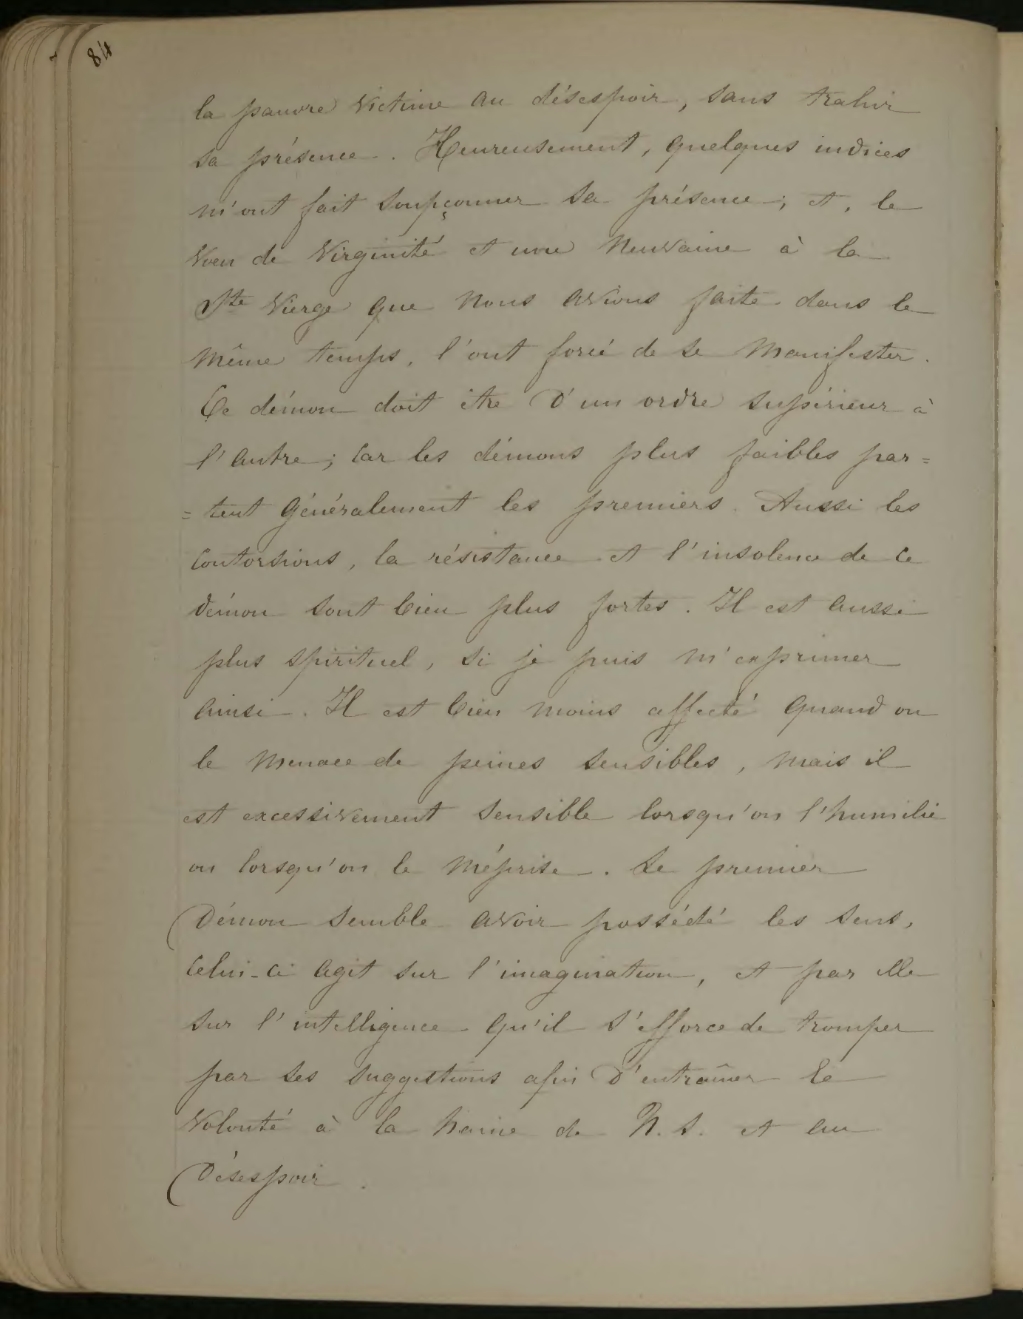 84
la pauvre victime au désespoir, sans trahir
sa présence. Heureusement, quelques indices
m'ont fait soupçonner sa présence; et, le
vœu de Virginité et une Neuvaine à la
Ste Vierge que nous avions faite dans le
même temps, l'ont forcé de se manifester.
Ce démon doit être d'un ordre supérieur à
l'autre; car les démons plus faibles par=
=tent généralement les premiers. Aussi les
contorsions, la résistance et l'insolence de ce
démon sont bien plus fortes. Il est aussi
plus spirituel, si je puis m'exprimer
ainsi. Il est bien moins affecté quand on
le menace de peines sensibles, mais il
est excessivement sensible lorsqu'on l'humilie
ou lorsqu'on le méprise. Le premier
Démon semble avoir possédé les sens,
celui-ci agit sur l'imagination, et par elle
sur l'intelligence qu'il s'efforce de tromper
par ses suggestions afin d'entraîner la
volonté à la haine de N. S. et au
Désespoir.